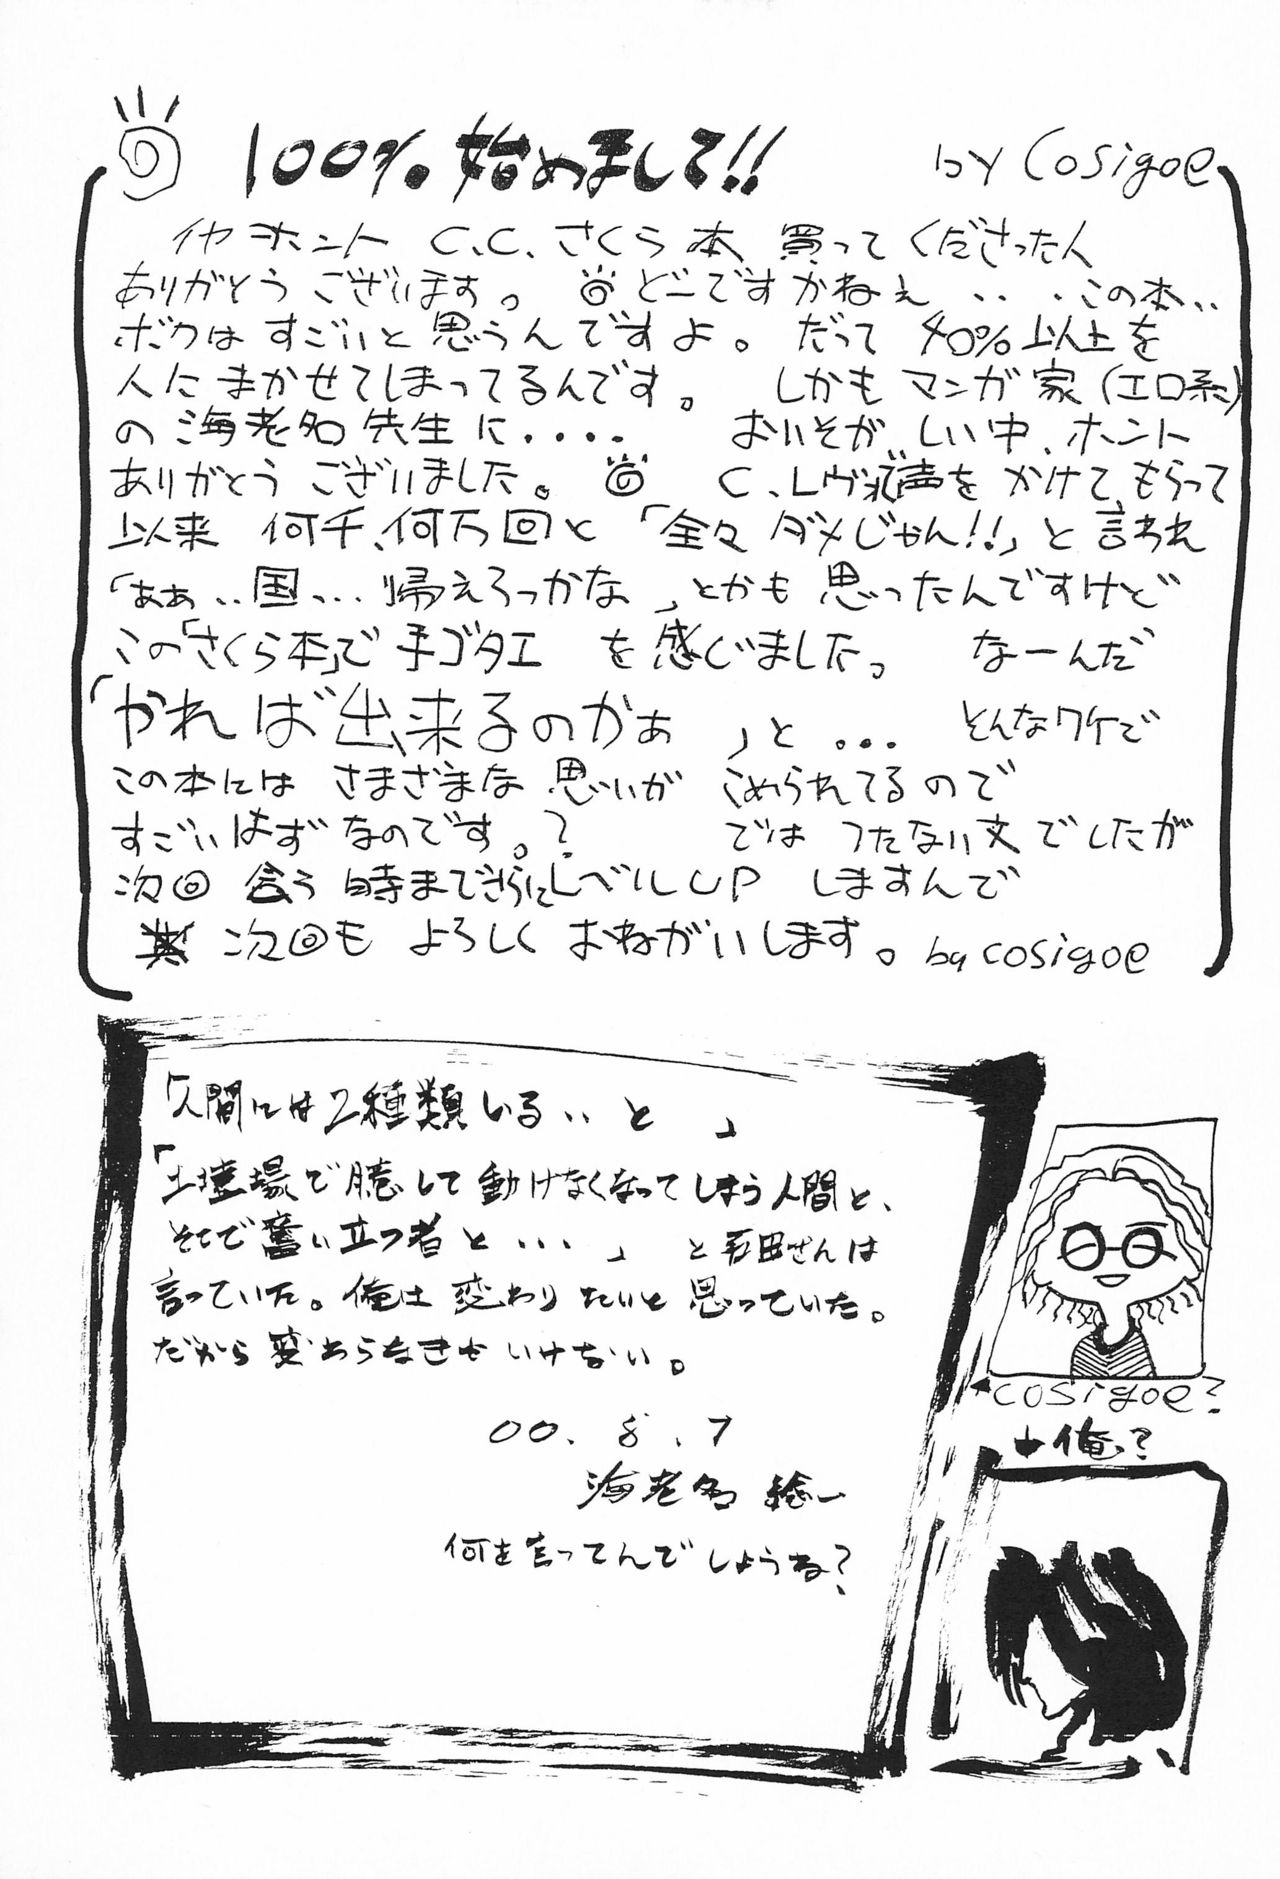 100% 始めまして!! by Cosigoe
イヤ ホント C.C.さくら本 買ってくださった人
ありがとう ございます。 どーですかねぇ ・・・この本・・
ボクは すごいと 思うんですよ。 だって 40%以上を
人に まかせてしまってるんです。 しかも マンガ家(エロ系)
の 海老名先生に・・・・ おいそがしい中、ホント
ありがとう ございました。 C.Lヴで声を かけて もらって
以来 何千、何万回と「全々 ダメじゃん!!」と 言われ
「ああ・・国・・・帰えろっかな」とかも 思ったんですけど
この「さくら本」で 手ゴタエ を感じました。 なーんだ
「やれば出来るのかぁ 」と ... そんなワケで
この本には さまざまな 思いが こめられてるので
すごいはず なのです。? では つたない文でしたが
次回 会う 時までさらにレベルUP しますんで
次回も よろしく おねがいします。by cosigoe
「人間には2種類いる・・と 」
「土壇場で臆して動けなくなってしまう人間と、
そこで奮い立つ者と・・・」 と 石田さんは
言っていた。俺は 変わりたいと 思っていた。
だから変わらなきゃいけない。
00. 8. 7
海老名 総一
何を言ってんでしょうね?
cosigoe?
俺?